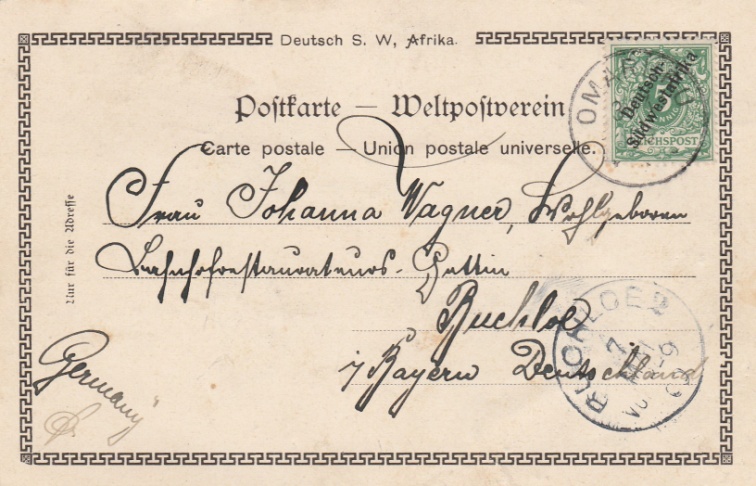 Deutsch S. W. Afrika.
Postkarte — Weltpostverein
Carte postale — Union postale universelle.
Deutsch-
Südwestafrika
REICHSPOST
OMARURU
Nur für die Adresse
Frau Johanna Wagner, Wohlgeboren
Bahnhofrestaurateurs-Gattin
Buchloe
i/Bayern Deutschland
Germany
BUCHLOE 2